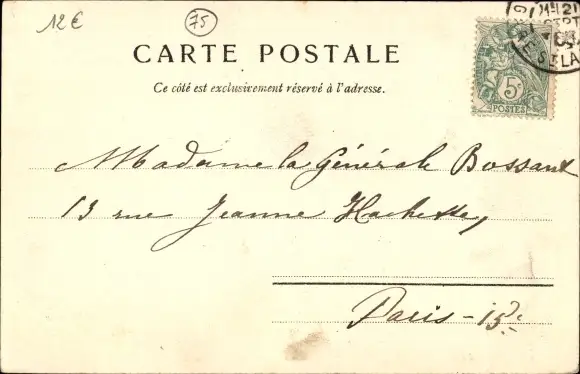 12 €
75
CARTE POSTALE
Ce côté est exclusivement réservé à l'adresse.
5c
POSTES
Madame la Générale Bossant
13 rue Jeanne Hachette,
Paris - 15e